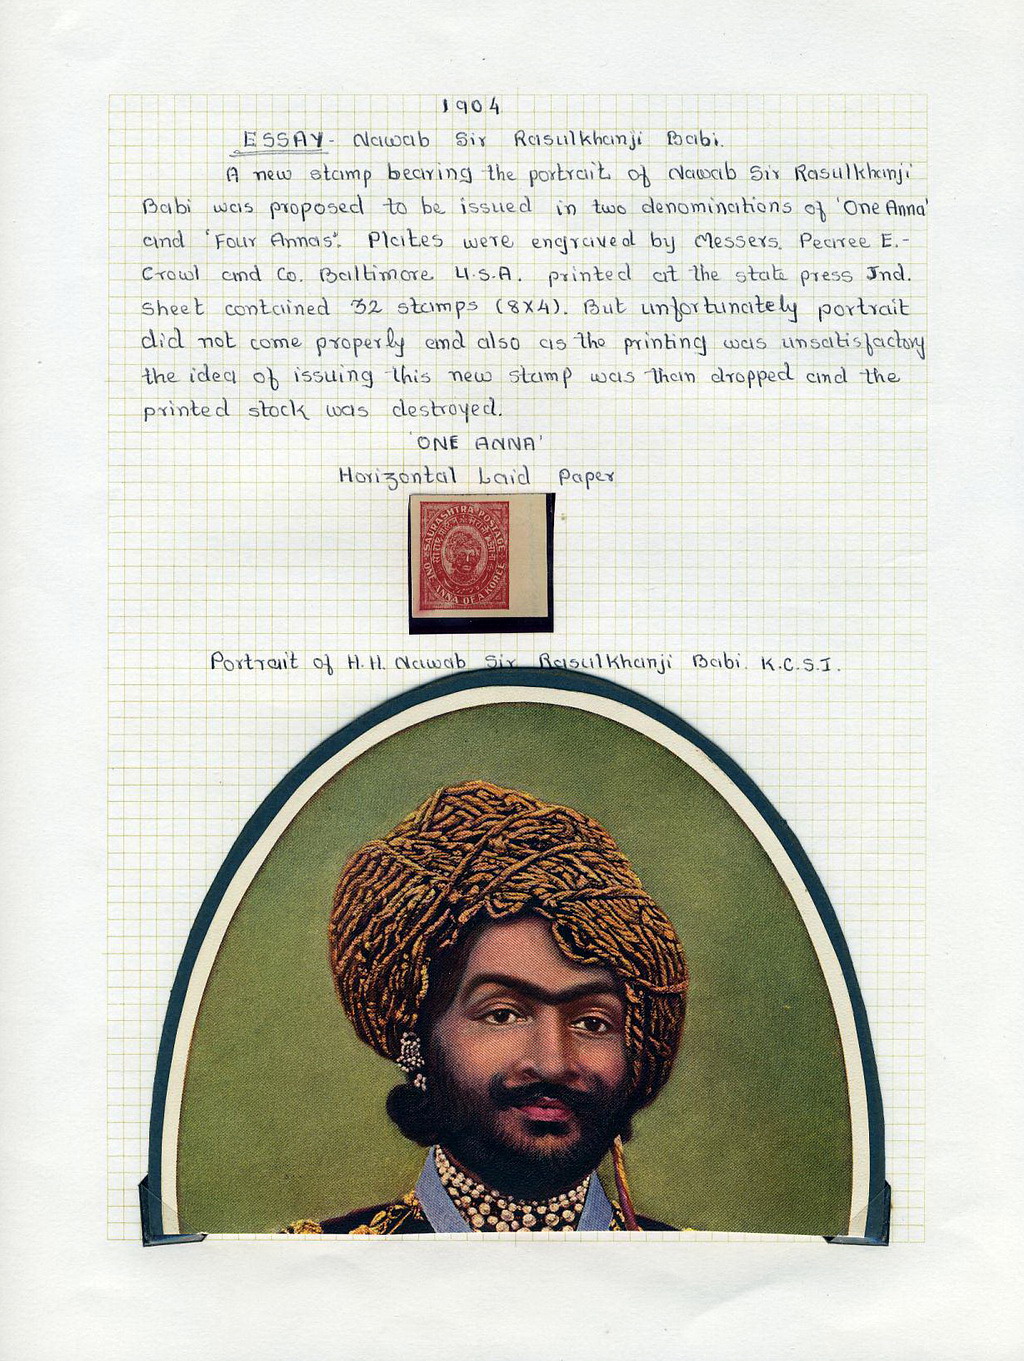 1904
ESSAY - Nawab Sir Rasulkhanji Babi.
A new stamp bearing the portrait of Nawab Sir Rasulkhanji
Babi was proposed to be issued in two denominations of 'One Anna'
and 'Four Annas'. Plates were engraved by Messers. Pearee E.-
Crowl and Co. Baltimore U.S.A. printed at the state press Jnd.
Sheet contained 32 stamps (8x4). But unfortunately portrait
did not come properly and also as the printing was unsatisfactory
the idea of issuing this new stamp was then dropped and the
printed stock was destroyed.
'ONE ANNA'
Horizontal Laid Paper
SAURASHTRA POSTAGE
ONE ANNA OF A KOREE
Portrait of H.H. Nawab Sir Rasulkhanji Babi. K.C.S.I.